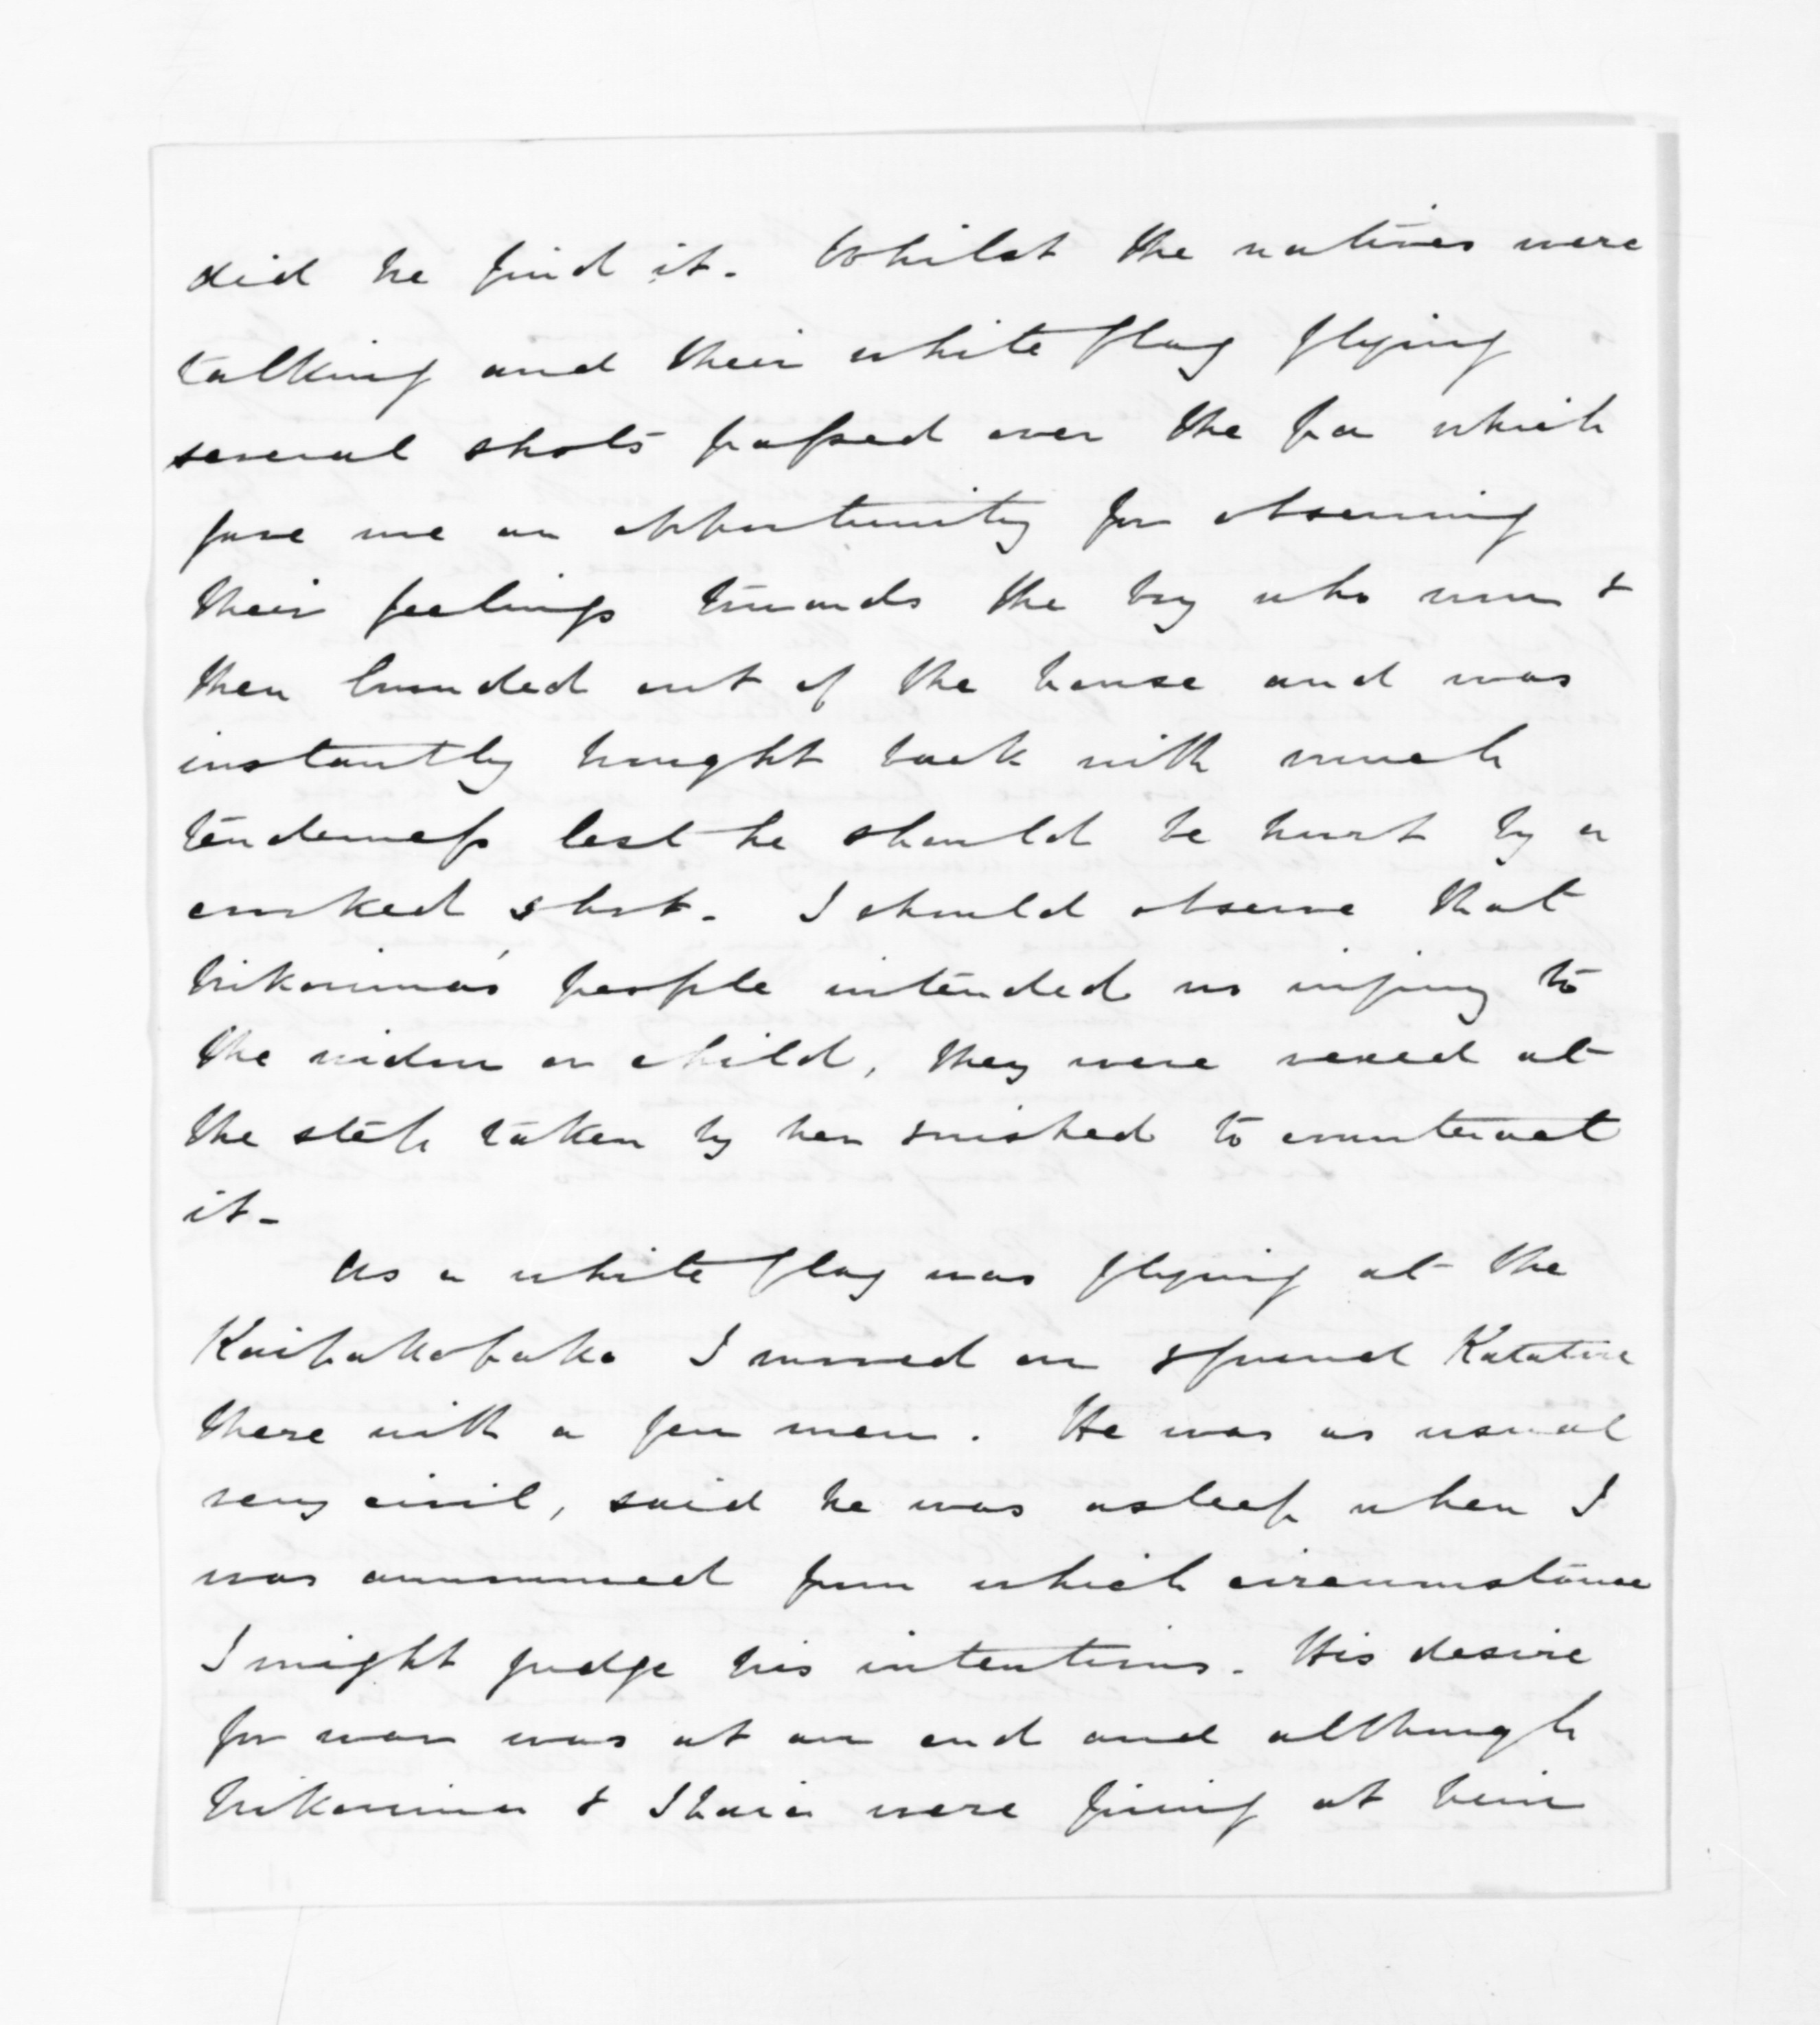 did he find it. Whilst the natives were
talking and their white flag flying
several shots passed over the pa which
gave me an opportunity for observing
their feelings towards the boy who now &
then bounded out of the house and was
instantly brought back with much
tenderness lest he should be hurt by a
crooked shot. I should observe that
Nikorima's people intended no injury to
the widow or child, they were vexed at
the step taken by her & wished to counteract
it.
As a white flag was flying at the
Kaipakopako I moved on & found Katatore
there with a few men. He was as usual
very civil, said he was asleep when I
was announced from which circumstance
I might judge his intentions. His desire
for war was at an end and although
Nikorima & Ihaia were firing at him